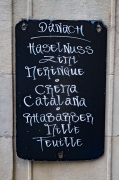 DANACH
HASELNUSS
ZIMT
MERINGUE
•
CREMA
CATALANA
•
RHABARBER
MILLE
FEUILLE